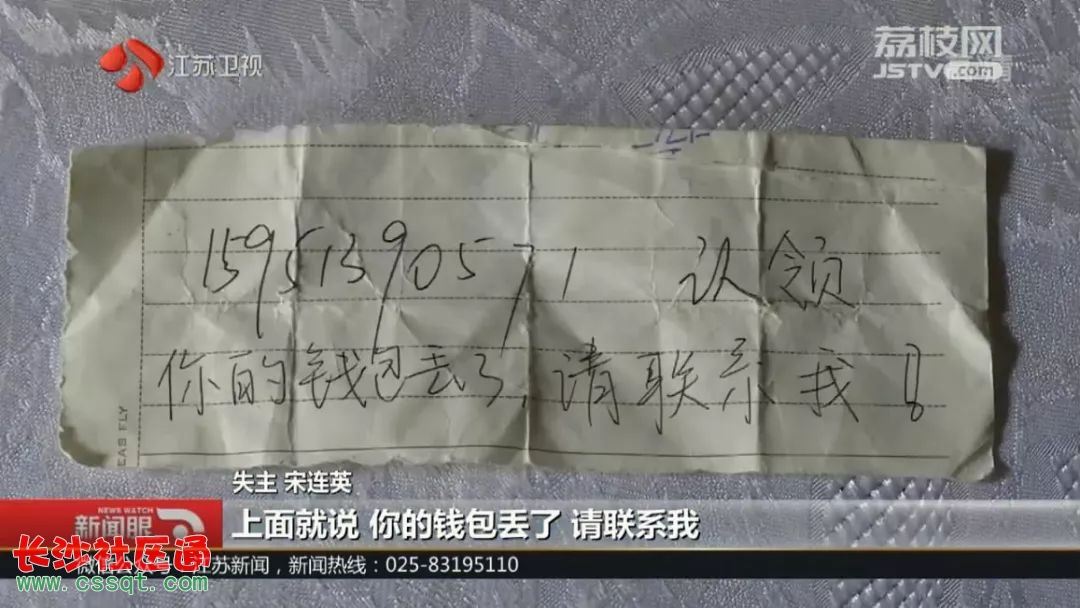 江苏卫视
荔枝网
JSTV.com
15951390571 认领
你的钱包丢了,请联系我!
EAS FLY
失主 宋连英
NEWS WATCH
新闻眼
上面就说 你的钱包丢了 请联系我
长沙社区通
www.cssqt.com
江苏新闻,新闻热线:025-83195110